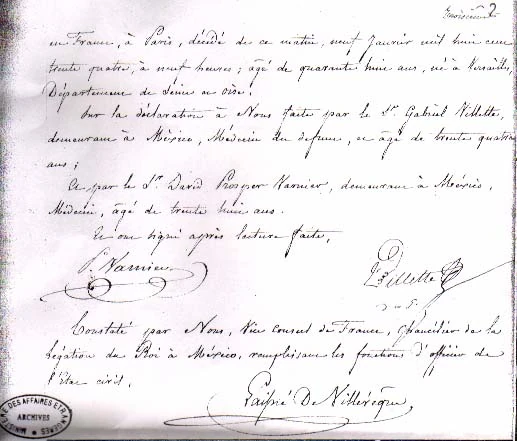 2
en France, à Paris, décédé de ce matin, neuf Janvier mil huit cent
trente quatre, à neuf heures ; âgé de quarante huit ans, né à Versailles,
Département de Seine et Oise !
Sur la déclaration à Nous faite par le Sr. Gabriel Villette,
demeurant à México, Médecin du défunt, et âgé de trente quatre
ans ;
Et par le Sr. David Prosper Varnier, demeurant à México,
Médecin, âgé de trente huit ans.
Et ont signé après lecture faite,
P. Varnier
Villette
Constaté par Nous, Vice Consul de France, Chancelier de la
Légation du Roi à México, remplissant les fonctions d'officier de
l'Etat civil.
De Villevêque
MINISTÈRE DES AFFAIRES ETRANGERES
ARCHIVES